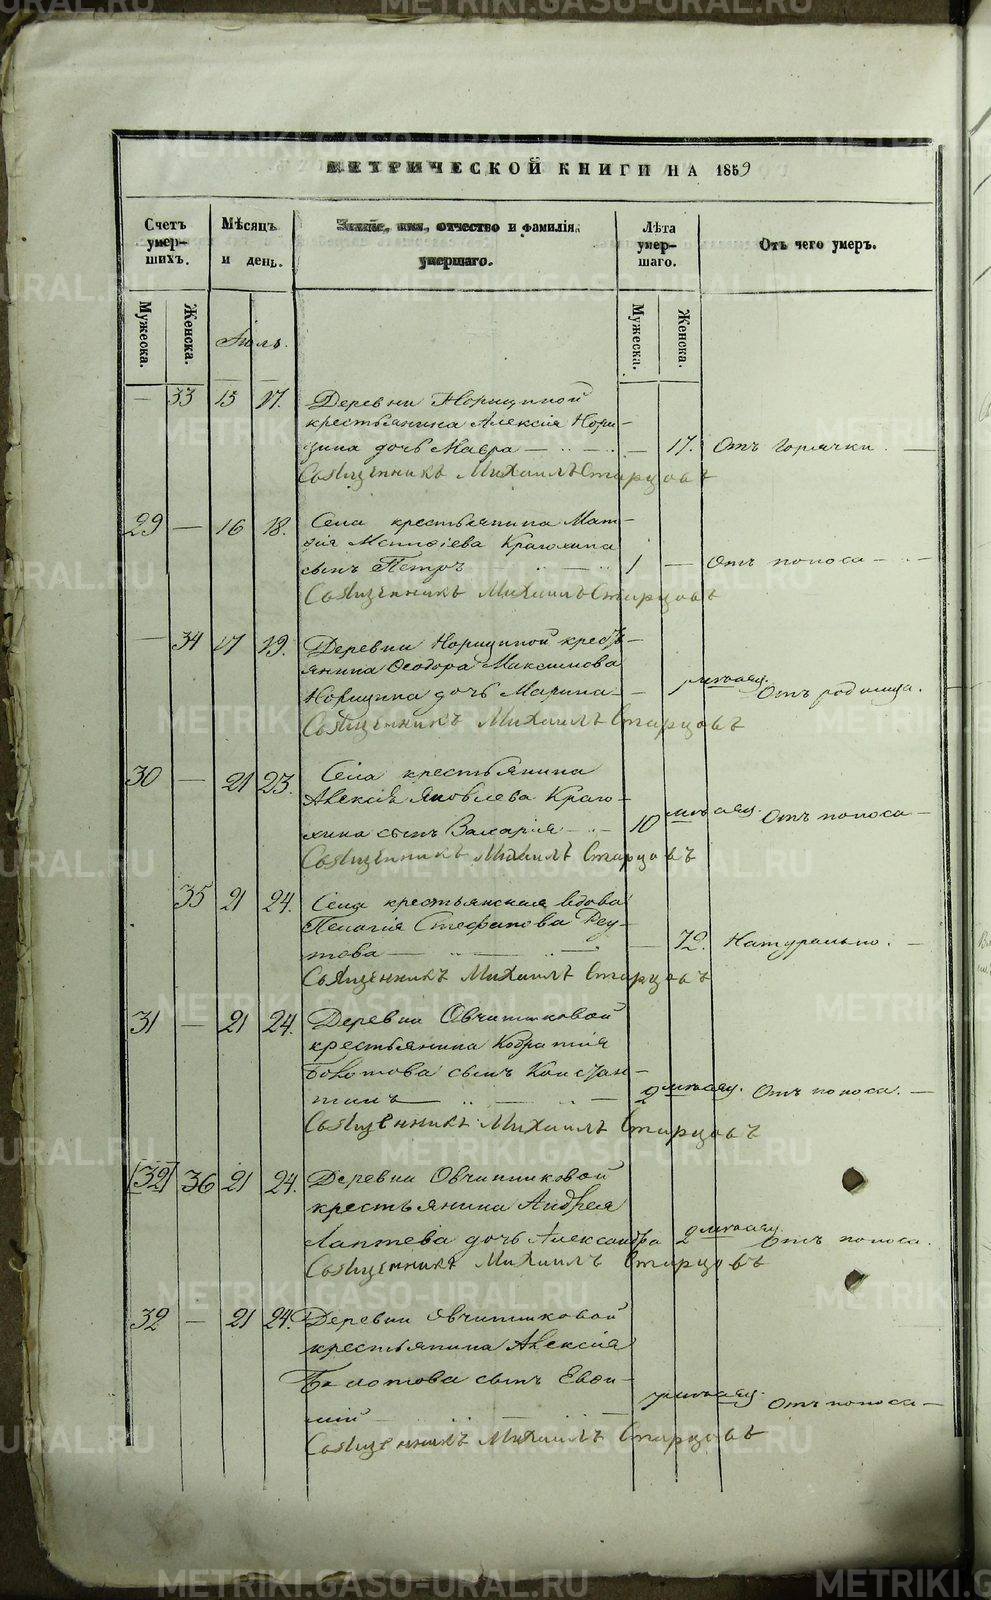 МЕТРИЧЕСКОЙ КНИГИ НА 1859
Счетъ умер-шихъ.
Мѣсяцъ и день.
Званіе, имя, отчество и фамилія умершаго.
Лѣта умер-шаго.
Отъ чего умеръ.
Мужеска.
Женска.
Мужеска.
Женска.
Іюль.
— 33 15 17. Деревни Норициной
крестьянина Алексія Нори-
цина дочь Мавра — — 17. Отъ горячки. —
Священникъ Михаилъ Старцовъ
29 — 16 18. Села крестьянина Мат-
сынъ Петръ 1 — Отъ поноса —
Священникъ Михаилъ Старцовъ
— 34 17 19. Деревни Норициной крест-
янина Ѳеодора Максимова
Норицина дочь Марина — мѣсяц. Отъ родимца.
Священникъ Михаилъ Старцовъ
30 — 21 23. Села крестьянина
Алексія Яковлева
сынъ Захарія — 10 мѣсяц. Отъ поноса —
Священникъ Михаилъ Старцовъ
35 21 24. Села крестьянская вдова
Пелагія Стефанова Реу-
това — — 72. Натурально. —
Священникъ Михаилъ Старцовъ
31 — 21 24. Деревни Овчинниковой
крестьянина Кодратія
Болотова сынъ Констан-
тинъ — 2 мѣсяц. Отъ поноса. —
Священникъ Михаилъ Старцовъ
(32) 36 21 24. Деревни Овчинниковой
крестьянина Андрея
Лаптева дочь Александра 2 мѣсяц. Отъ поноса.
Священникъ Михаилъ Старцовъ
32 — 21 24. Деревни Овчинниковой
крестьянина Алексія
Болотова сынъ Евѳи-
мій — мѣсяц. Отъ поноса —
Священникъ Михаилъ Старцовъ
METRIKI.GASO-URAL.RU